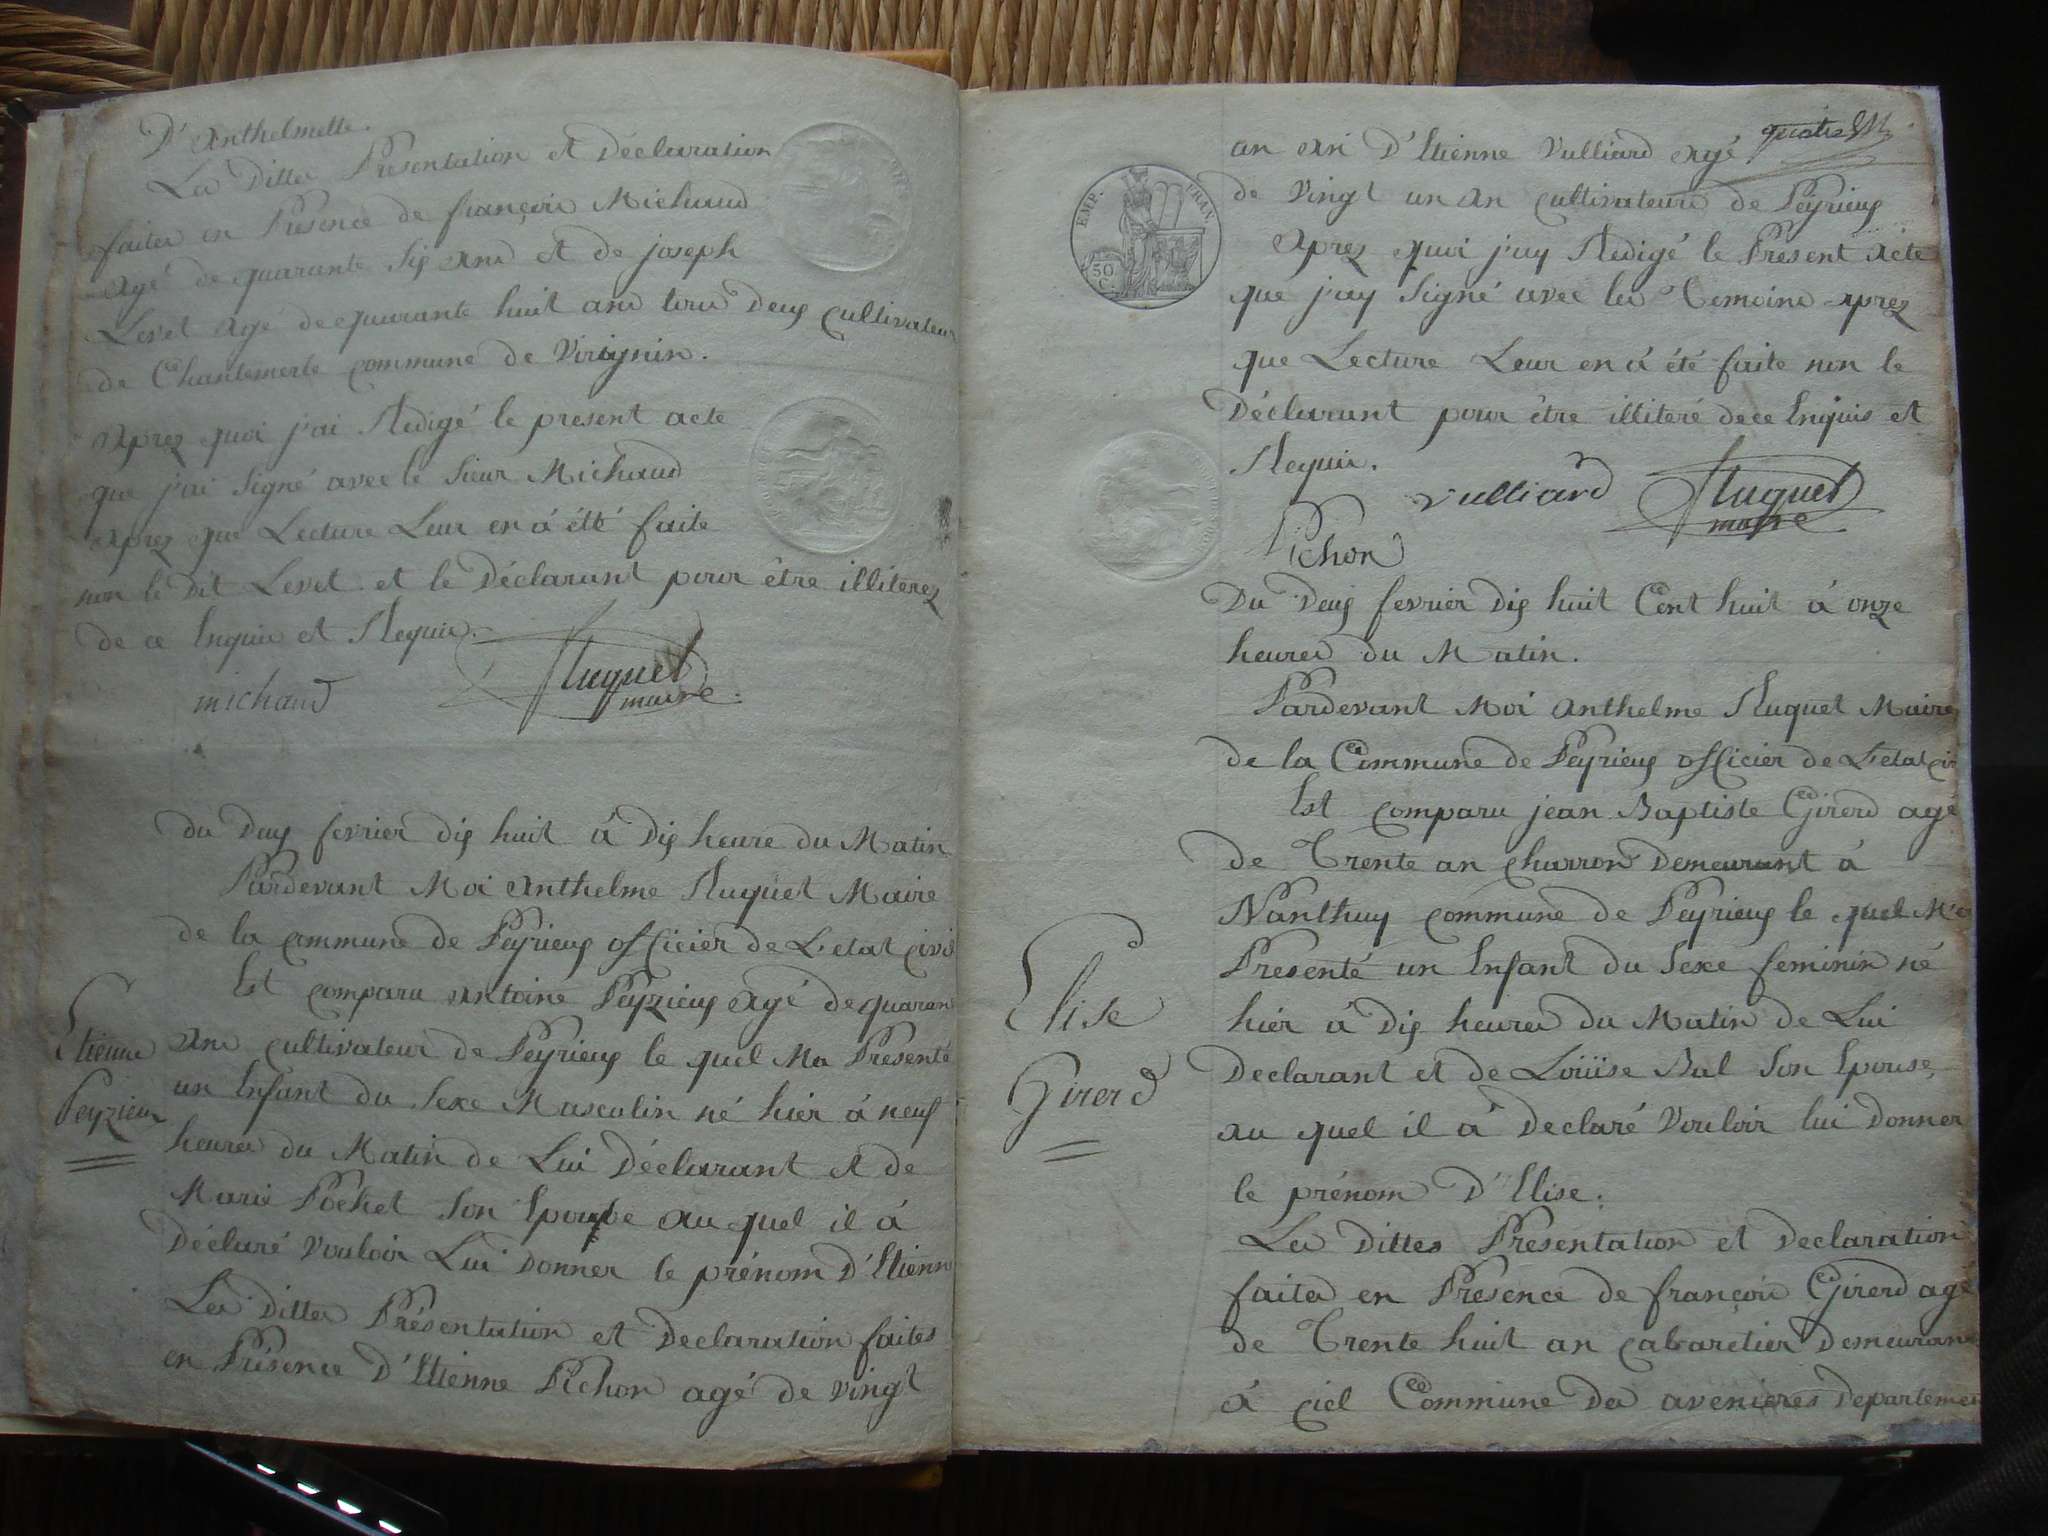 D'Anthelmette.
Les Dittes Présentation et Déclaration
faites en Présence de françois Michaud
Agé de quarante Six Ans et de joseph
Levet Agé de quarante huit ans tous Deux Cultivateurs
de Chantemerle commune de Virignin.
Aprez quoi j'ai Rédigé le present acte
que j'ai Signé avec le Sieur Michaud
Aprez que Lecture Leur en á été faite
non le Dit Levet et le Déclarant pour être illiterez
de ce Enquis et Requis.
michaud
Ruquet
maire
Du Deux fevrier dix huit á Dix heure du Matin
Pardevant Moi Anthelme Ruquet Maire
de la commune de Peyrieux officier de L'etat civil
Est comparu Antoine Peyzieux Agé de quaran
Ans cultivateur de Peyrieux le quel Ma Presenté
un Enfant du Sexe Masculin né hier á neuf
heures du Matin de Lui Déclarant et de
Marie Pochet Son Epouse au quel il á
Déclaré Vouloir Lui Donner le prénom D'Etienne
Les Dittes Présentation et Declaration faites
en Présence D'Etienne Pichon agé de vingt
Etienne
Peyzieux
EMP. FRAN.
50
C.
quatre
un an D'Etienne Vulliard Agé
de Vingt un an Cultivateurs de Peyrieux
Aprez quoi j'ay Rédigé le Présent Acte
que j'ay Signé avec les Temoins aprez
que Lecture Leur en á été faite non le
Déclarant pour être illiteré de ce Enquis et
Requis.
Vulliard
Ruquet
maire
Pichon
Du Deux fevrier Dix huit Cent huit á onze
heures du Matin.
Pardevant Moi Anthelme Ruquet Maire
de la Commune de Peyrieux officier de L'etat ci
Est comparu jean Baptiste Girerd agé
de Trente an Charron Demeurant á
Nanthuy commune de Peyrieux le quel M'a
Presenté un Enfant du Sexe feminin né
hier á Dix heures du Matin de Lui
Declarant et de Loüise Bal Son Epouse,
au quel il á Declaré Vouloir lui Donner
le prénom D'Elise.
Les Dittes Présentation et Declaration
faites en Présence de françois Girerd agé
de Trente huit an cabaretier Demeurant
á Ciel Commune des avenieres Departemen
Elise
Girerd